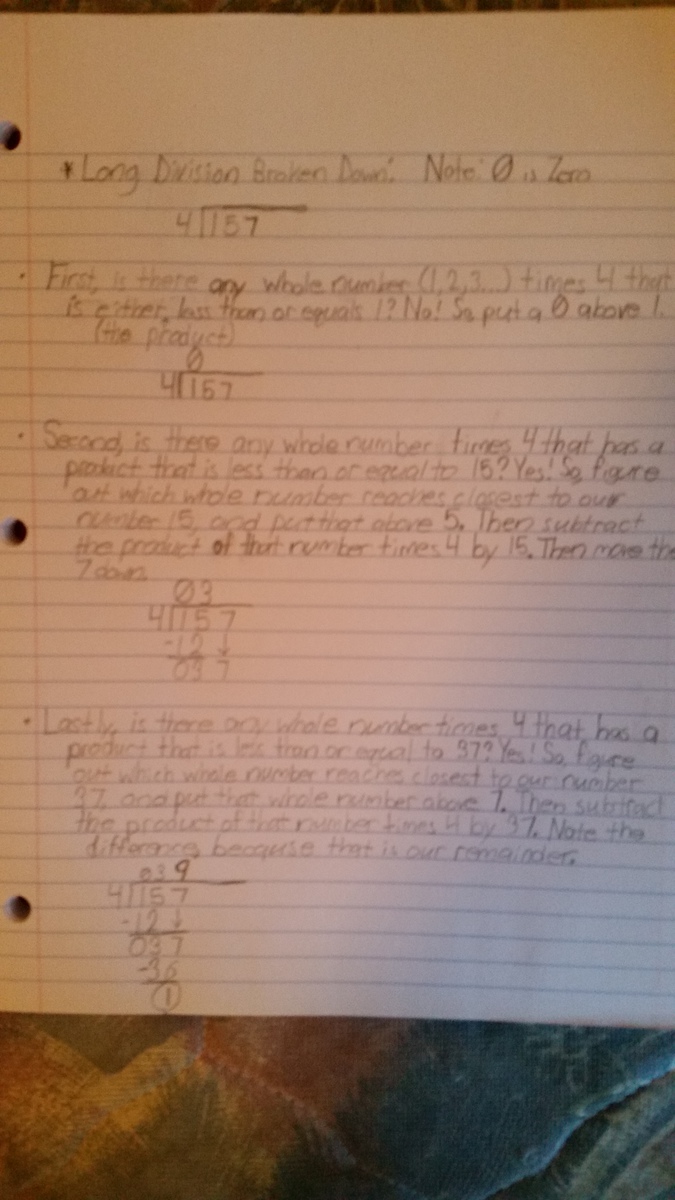 * Long Division Broken Down: Note: 0 is Zero
4 157
• First, is there any whole number (1,2,3...) times 4 that
is either, less than or equals 1? No! So put a 0 above 1.
(the product)
0
4 157
• Second, is there any whole number times 4 that has a
product that is less than or equal to 15? Yes! So, figure
out which whole number reaches closest to our
number 15, and put that above 5. Then subtract
the product of that number times 4 by 15. Then move the
7 down.
03
4 157
-12 ↓
03 7
• Lastly, is there any whole number times 4 that has a
product that is less than or equal to 37? Yes! So, figure
out which whole number reaches closest to our number
37, and put that whole number above 7. Then subtract
the product of that number times 4 by 37. Note the
difference, because that is our remainder.
039
4 157
-12 ↓
037
-36
1